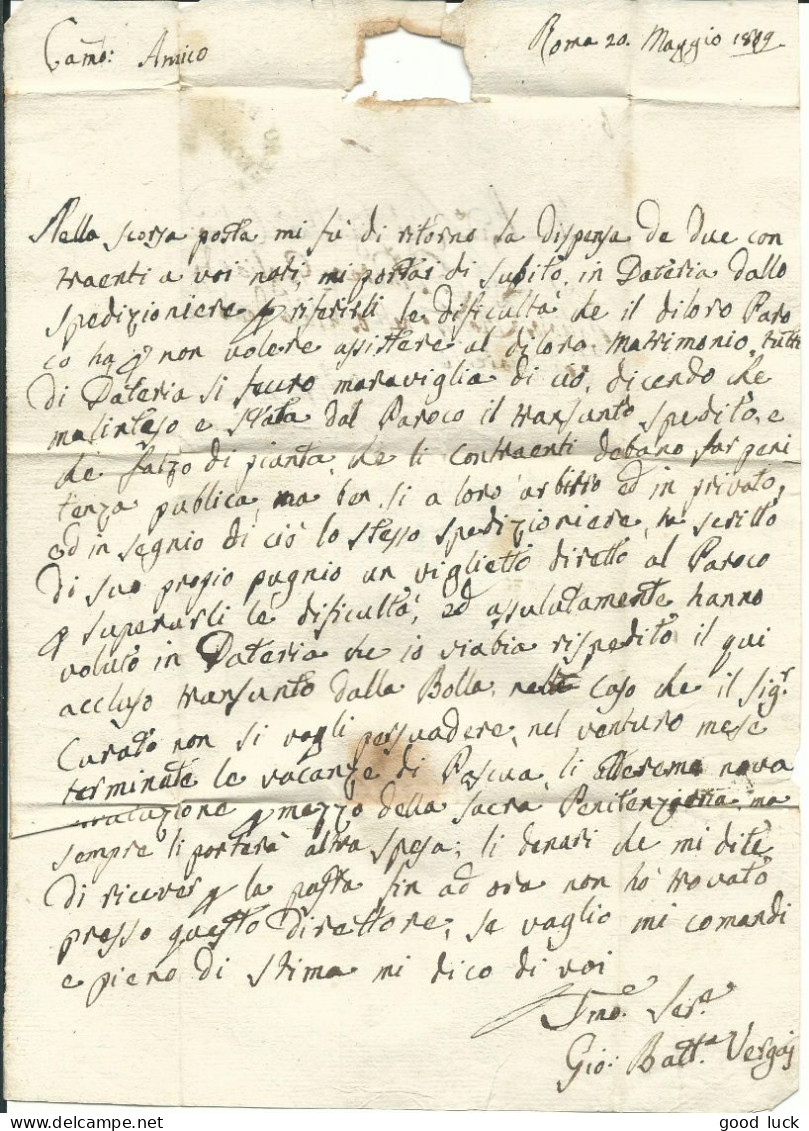 Camo: Amico
Roma 20. Maggio 1819
Nella scorsa posta mi fù di ritorno la dispensa de due con
traenti a voi noti, mi portai di subito, in Dateria dallo
spedizioniere p riferirli le dificultà che il diloro Paro
co ha p non volere assistere al diloro matrimonio, tutti
di Dateria si fecero maraviglia di ciò, dicendo che
malinteso e stata dal Paroco il transunto spedito, e
che falzo di pianta, che li contraenti debano far peni
tenza publica, ma ben si a loro arbitro ed in privato,
ed in segnio di ciò lo stesso spedizioniere, ha scritto
di suo propio pugnio un viglietto diretto al Paroco
p superarli le dificultà, ed assulutamente hanno
voluto in Dateria che io viabia rispedito il qui
accluso transunto dalla Bolla, nell caso che il sigr
Curato non si vogli persuadere, nel venturo mese
terminate le vacanze di Pascua, li nova
p mezzo della Sacra Penitenzieria, ma
sempre li porterà altra spesa; li denari che mi dite
di ricever p la posta, fin ad ora non hò trovato
presso questo direttore, se vaglio mi comandi
e pieno di stima mi dico di voi
Gio: Batta